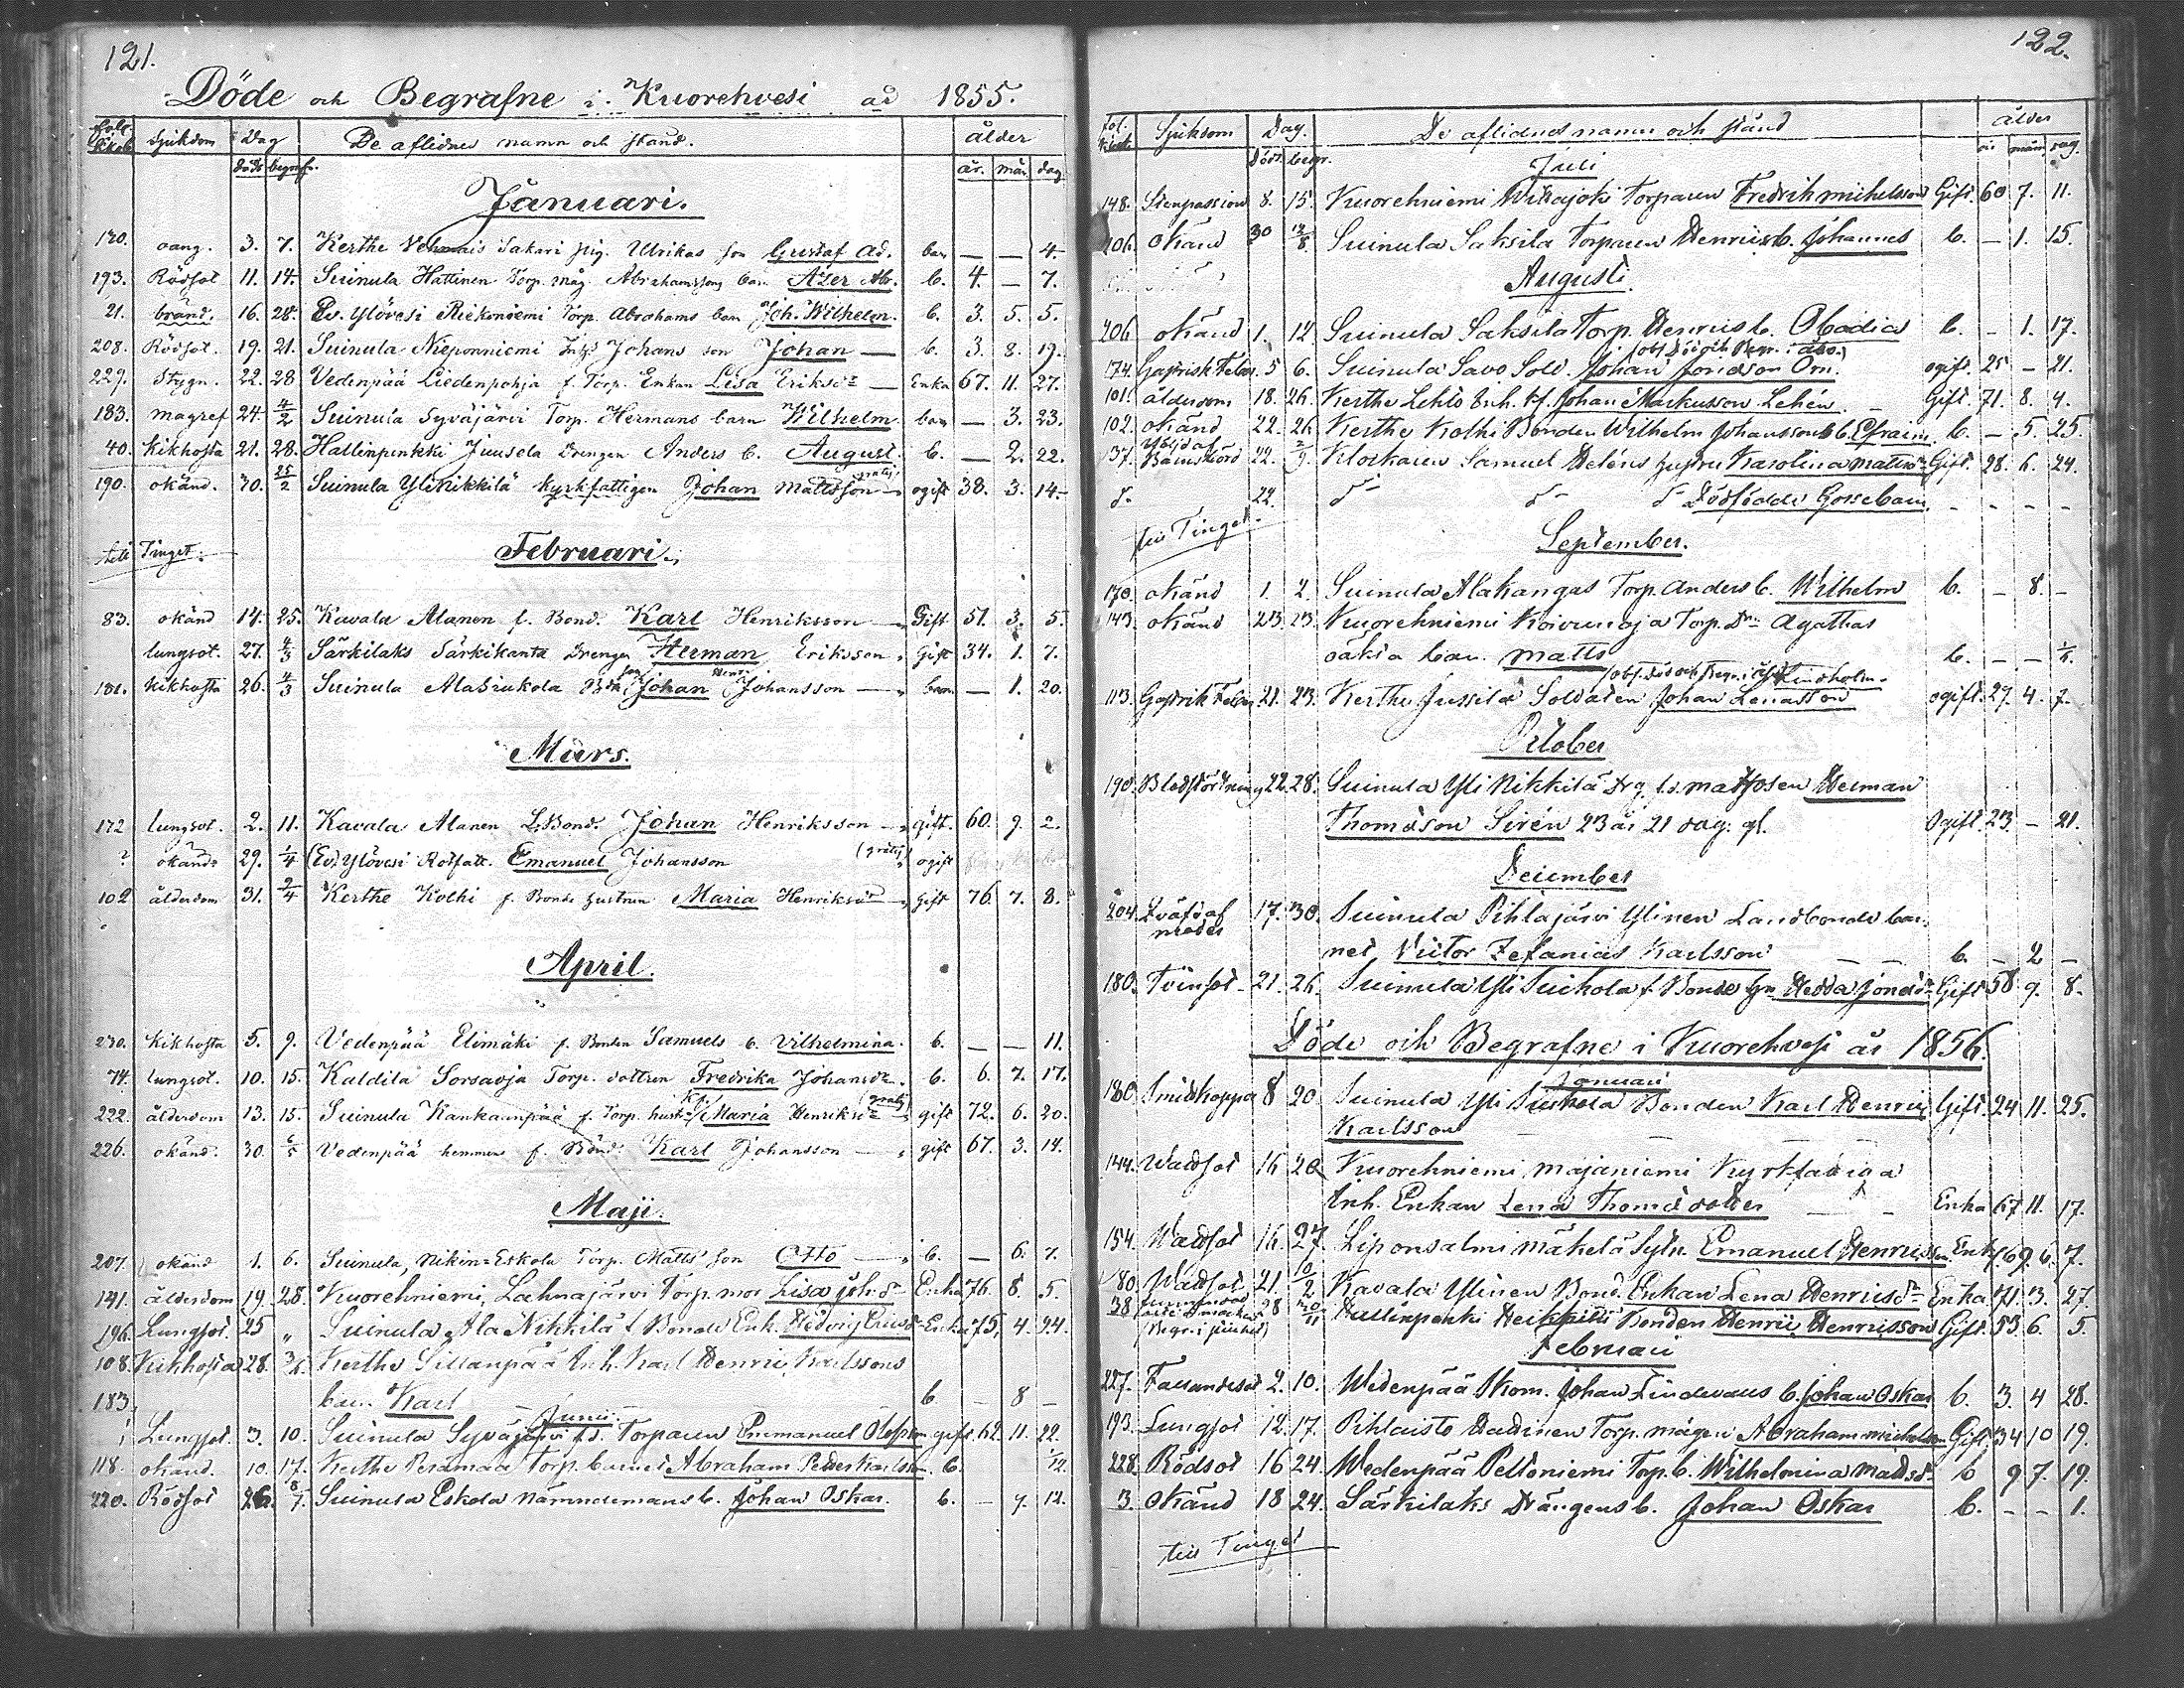 121.
Döde och Begrafne i Kuorehvesi ad 1855.
Sjukdom Dag De aflidnes namn och stånd. ålder
död begrafn. år. mån. dag
Januari.
120. oäng. 3. 7. Kerthe Sakari pig. Ulrikas son Gustaf Ad. barn — — 4.
193. Rödsot 11. 14. Suinula Hattinen Torp. måg Abrahamssons barn b. 4. — 7.
21. bränd. 16. 28. Ev. Ylövesi Riekoniemi Torp. Abrahams barn Joh. Wilhelm. b. 3. 5. 5.
208. Rödsot. 19. 21. Suinula Nieponniemi Inhs Johans son Johan — b. 3. 8. 19.
229. Stygn. 22. 28 Vedenpää Liedenpohja f. Torp. Enkan Lisa Eriksdr — Enka 67. 11. 27.
183. magref 24. 4/2 Suinula Syväjärvi Torp. Hermans barn Wilhelm barn — 3. 23.
40. Kikhosta 21. 28. Hallinpenkki Juusela Drengen Anders b. August. b. — 2. 22.
190. okänd. 30. 25/2 Suinula Ylinikkilä kyrkfattigen Johan Mattsson gratis ogift 38. 3. 14.
till Tinget.
Februari.
83. okänd 14. 25. Kavala Alanen f. Bond. Karl Henriksson — Gift 51. 3. 5.
lungsot. 27. 4/3 Särkilaks Särkikanta Drengen Herman Eriksson Gift 34. 1. 7.
181. kikhosta 26. 4/3 Suinula Alasiukola Johan Johansson — barn — 1. 20.
Mars.
172 lungsot. 2. 11. Kavala Alanen L.Bond. Johan Henriksson — gift. 60. 9. 2.
? okänd 29. 1/4 (Ev) Ylövesi Rotfatt. Emanuel Johansson (gratis) ogift
102 ålderdom 31. 9/4 Kerthe Kolhi f. Bonde hustrun Maria Henriksdr — gift 76. 7. 8.
April.
230. Kikhosta 5. 9. Vedenpää Elimäki f. Bonden Samuels b. Vilhelmina. b. — — 11.
74. lungsot. 10. 15. Kaldila Sorsavja Torp. dottren Fredrika Johansdr. b. 6. 7. 17.
222. ålderdom 13. 15. Suinula Kankaanpää f. Torp. hustr. Maria Henriksdr (gratis) gift 72. 6. 20.
226. okänd. 30. 6/5 Vedenpää hemman f. Bond. Karl Johansson — gift 67. 3. 14.
Maji.
207. okänd 1. 6. Suinula, Nikin=Eskola Torp. Matts son Otto — b. — 6. 7.
141. ålderdom 19. 28. Kuorehniemi, Lahnajärvi Torp. mor Lisa Joh.dr Enka 76. 8. 5.
196. Lungsot. 25 „ Suinula Ala Nikkilä f Bonde Enk. Hedvig Ericsdr Enka 75. 4. 24.
108. Kikhosta 28. 3/6 Kerthe Sillanpää Inh. Karl Henric Karlssons
183. barn Karl b — 8 —
Junii.
Lungsot. 3. 10. Suinula Syväjärvi f.d. Torparen Emmanuel gift. 62. 11. 22.
118. okänd. 10. 17. Kerthe Peramaa Torp. barnet Abraham Petter Karlsson. b. 1/12.
220. Rödsot 26. 8/7. Suinula Eskola nämndemans b. Johan Oskar. b. — 7. 12.
122.
Sjukdom Dag. De aflidnes namn och stånd ålder
Död. begr. år mån. dag.
Juli
148. Stenpassion 8. 15. Kuorehniemi Wikajoki Torparen Fredrik Michelsson Gift. 60 7. 11.
206. okänd 30 12/8 Suinula Saksila Torparen Henrics b. Johannes b. — 1. 15.
Augusti.
206 okänd 1. 12 Suinula Saksila Torp. Henrics b. Obadia b. — 1. 17.
174. Gastrisk Feber. 5 6. Suinula Savo Sold. Johan Jonasson Orn. (obs. Död och Begr. i Åbo.) ogift. 25 — 21.
101. ålderdom 18. 26. Kerthe Lehto Inh. Johan Markusson Lehén. Gift. 71. 8. 4.
102. okänd 22. 26 Kerthe Kolhi Bonden Wilhelm Johanssons b. Efraim. b. — 5. 25.
137. Barnsbörd 22. 2/9 Klockaren Samuel Heléns hustru Karolina Mattsdr Gift. 28. 6. 24.
d- 22. d- d- d- Dödfödde Gossebarn. - - - -
till Tinget.
September.
170. okänd 1. 2. Suinula Alakangas Torp. Anders b. Wilhelm b. — 8. —
143. okänd 23. 23. Kuorehniemi Koivunoja Torp. Dr Agathas
oäkta barn Matts b. — —
113. Gastrisk Feber 21. 23. Kerthe Jussila Soldaten Johan Lindholm. ogift. 29. 4. 7.
October
190. Blodstörtning 22. 28. Suinula Yli Nikkilä Drg. f.d. matrosen Herman
Thomasson Sirén 23 år 21 dag. gl. Ogift. 23 — 21.
December
204. qväfd af moder 17. 30. Suinula Pihlajärvi Ylinen Landbonde bar-
net Victor Zefanias Karlsson — — b. — 2 —
180. Tvinsot 21. 26. Suinula Yli Siukola f. Bonde hn Hedda Jonasdr Gift 58 9. 8.
Döde och Begrafne i Kuorehvesi år 1856.
Januari
180 Smittkoppa 8 20. Suinula Yli Siukola Bonden Karl Henric Gift. 24 11. 25.
Karlsson
144. Wattsot 16 20 Kuorehniemi, Majaniemi Kyrkfattiga
Inh. Enkan Lena Thomasdotter Enka 67 11. 17.
154. Wattsot 16. 27. Liponsalmi Mäkelä Sytn. Emanuel Henricsson Enkl. 69. 6. 7.
80. Wattsot 21. 10/2 Kavala Ylinen Bond. Enkan Lena Henricsdr Enka 71. 3. 27.
38 28 Hallinpenki Heikkilä Bonden Henric Henricsson Gift. 53 6. 5.
Februari
227. Fallandesot 2. 10. Wedenpää Skom. Johan Lindevaus b. Johan Oskar b. 3. 4 28.
193. Lungsot 12. 17. Pihlaisto Hattinen Torp. mågen Abraham Michelsson Gift. 34 10 19.
228. Rödsot 16 24. Wedenpää Peltoniemi Torp. b. Wilhelmina Mattsdr b 9 7. 19.
3. okänd 18 24. Särkilaks Drängens b. Johan Oskar b. - - 1.
till Tinget